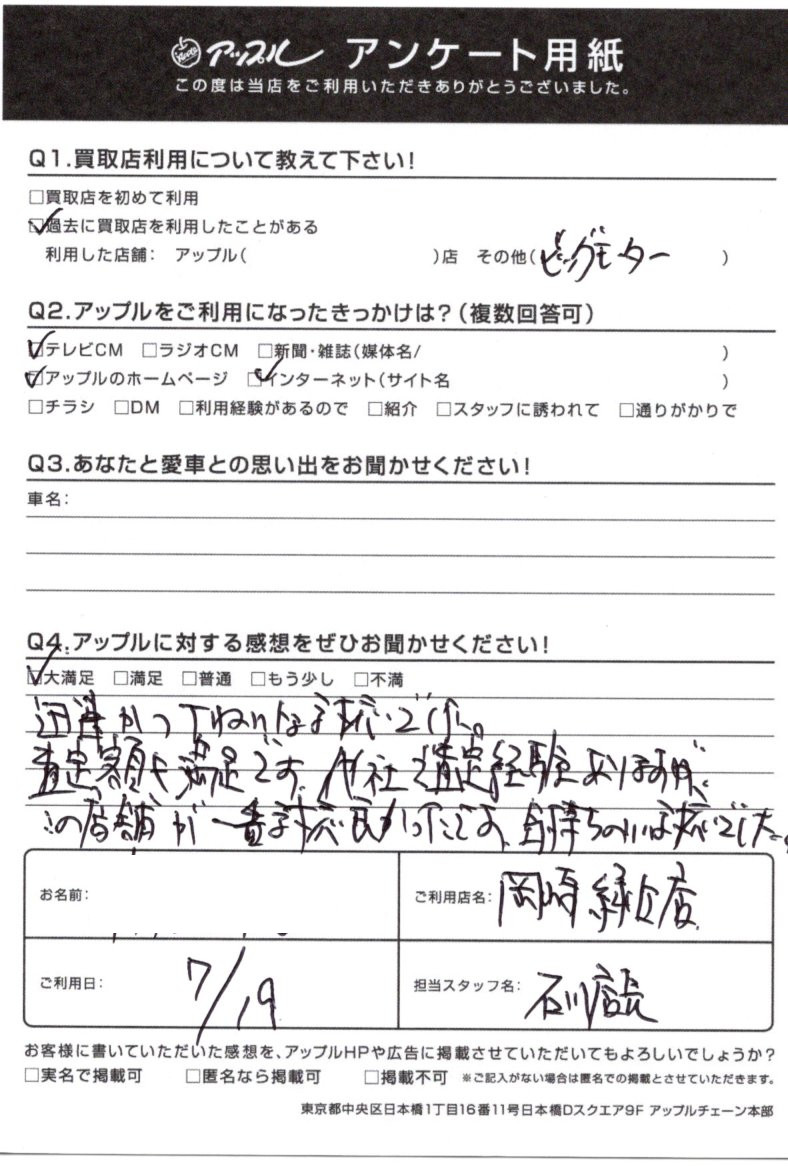 アップル アンケート用紙
この度は当店をご利用いただきありがとうございました。
Q1.買取店利用について教えて下さい!
□買取店を初めて利用
☑過去に買取店を利用したことがある
利用した店舗: アップル( )店 その他(ビッグモーター )
Q2.アップルをご利用になったきっかけは?(複数回答可)
☑テレビCM □ラジオCM □新聞・雑誌(媒体名/ )
☑アップルのホームページ ☑インターネット(サイト名 )
□チラシ □DM □利用経験があるので □紹介 □スタッフに誘われて □通りがかりで
Q3.あなたと愛車との思い出をお聞かせください!
車名:
Q4.アップルに対する感想をぜひお聞かせください!
☑大満足 □満足 □普通 □もう少し □不満
迅速かつていねいな対応でした。
査定額も満足です。他社で査定経験ありますが、
この店舗が一番対応良かったです。気持ちのいい対応でした。
お名前:
ご利用店名: 岡崎緑丘店
ご利用日: 7/19
担当スタッフ名: 石川店長
お客様に書いていただいた感想を、アップルHPや広告に掲載させていただいてもよろしいでしょうか?
□実名で掲載可 □匿名なら掲載可 □掲載不可 ※ご記入がない場合は匿名での掲載とさせていただきます。
東京都中央区日本橋1丁目16番11号日本橋Dスクエア9F アップルチェーン本部